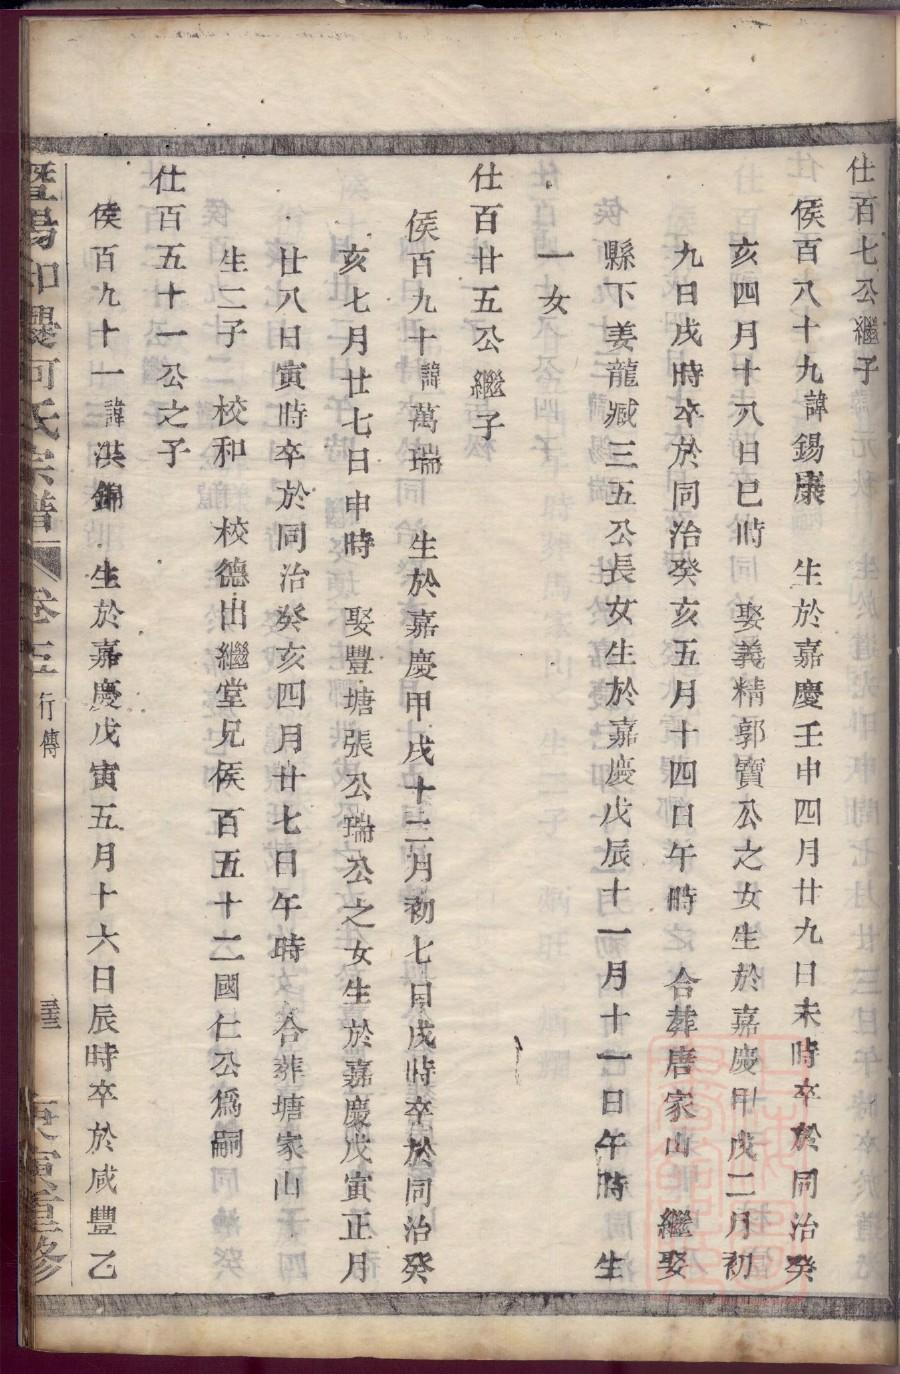 仕百七公繼子
侯百八十九諱錫康　生於嘉慶壬申四月廿九日未時卒於同治癸
亥四月十八日巳時　娶義精郭寶公之女生於嘉慶甲戌二月初
九日戌時卒於同治癸亥五月十四日午時　合葬唐家山　繼娶
縣下姜龍臧三五公長女生於嘉慶戊辰十一月十一日午時　生
一女
仕百廿五公繼子
侯百九十諱萬瑞　生於嘉慶甲戌十二月初七日戌時卒於同治癸
亥七月廿七日申時　娶豐塘張公瑞公之女生於嘉慶戊寅正月
廿八日寅時卒於同治癸亥四月廿七日午時　合葬塘家山
生二子　校和　校德出繼堂兄侯百五十二國仁公爲嗣
仕百五十一公之子
侯百九十一諱洪錦　生於嘉慶戊寅五月十六日辰時卒於咸豐乙
暨陽 何氏宗譜 卷 行傳 寅重修